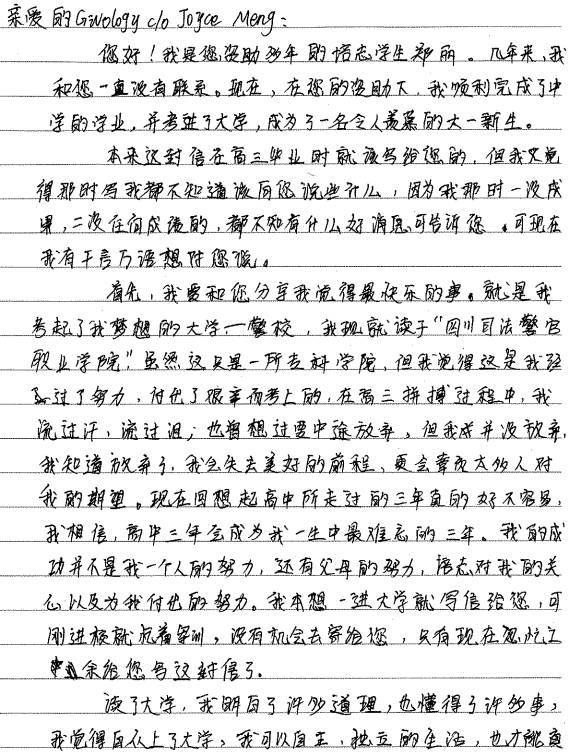 亲爱的Givology c/o Joyce Meng:
您好！我是您资助多年的语志学生郑丽。几年来,我
和您一直没有联系。现在,在您的资助下,我顺利完成了中
学的学业,并考进了大学,成为了一名令人羡慕的大一新生。
本来这封信在高三毕业时就该写给您的,但我又觉
得那时写我都不知道该向您说些什么,因为我那时一没成
果,二没任何成绩的,都不知有什么好消息可告诉您。可现在
我有千言万语想对您说。
首先,我要和您分享我觉得最快乐的事。就是我
考起了我梦想的大学—警校,我现就读于“四川司法警官
职业学院”虽然这只是一所专科学院,但我觉得这是我经
过了努力,付代了很辛而考上的,在高三拼搏过程中,我
流过汗,流过泪;也曾想过要中途放弃,但我并没放弃,
我知道放弃了,我会失去美好的前程、更会辜负太多人对
我的期望。现在回想起高中所走过的三年真的好不容易,
我相信,高中三年会成为我一生中最难忘的三年。我的成
功并不是我一个人的努力,还有父母的努力,语志对我的关
心以及为我付出的努力。我本想一进大学就写信给您,可
刚进校就忙着军训,没有机会去寄给您,只有现在忽忙之
余给您写这封信了。
读了大学,我明白了许多道理,也懂得了许多事,
我觉得自从上了大学,我可以自主,独立的生活,也才能真